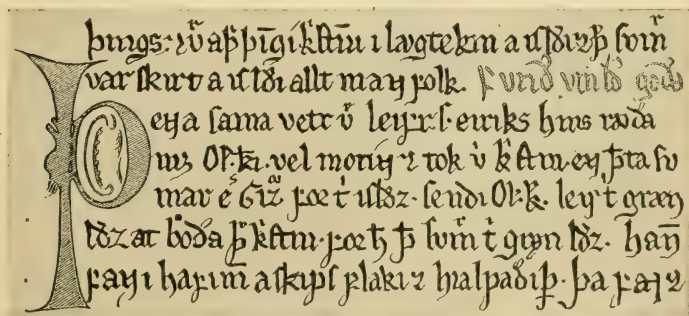 þings: ⁊ v͛ a þ̄ þīgi k͛ſtni ı lǫgtekın a ıſlðı ⁊ þ̄ ſum͛
var ſkırt a ıſlðı allt maɴ ꝼolk. ꝼundꝛ vinlðs goða
Þeɴa ſama vetr v͛ leıꝼr .ſ. eırıks hıns rauda
m; Ol. k̄ı. vel metıɴ ⁊ tok v͛ k͛ſtni. eɴ þta ſu
mar e͛ Gız͛ ꝼoꝛ t̄ ıſlðz. ſendı Ol. k̄. leıꝼ t̄ græn
lðz at boða þ͛ k͛ſtni. ꝼoꝛ h̄ þ̄ ſum͛ t̄ grǫn lðz. hań
ꝼaɴ ı haꝼınu a ſkıpſ ꝼlakı ⁊ hıalpaðı þ̄. þa ꝼaɴ ⁊